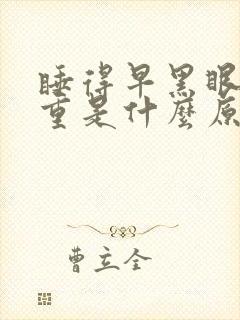 睡得早黑眼
重是什麼原
曹立全